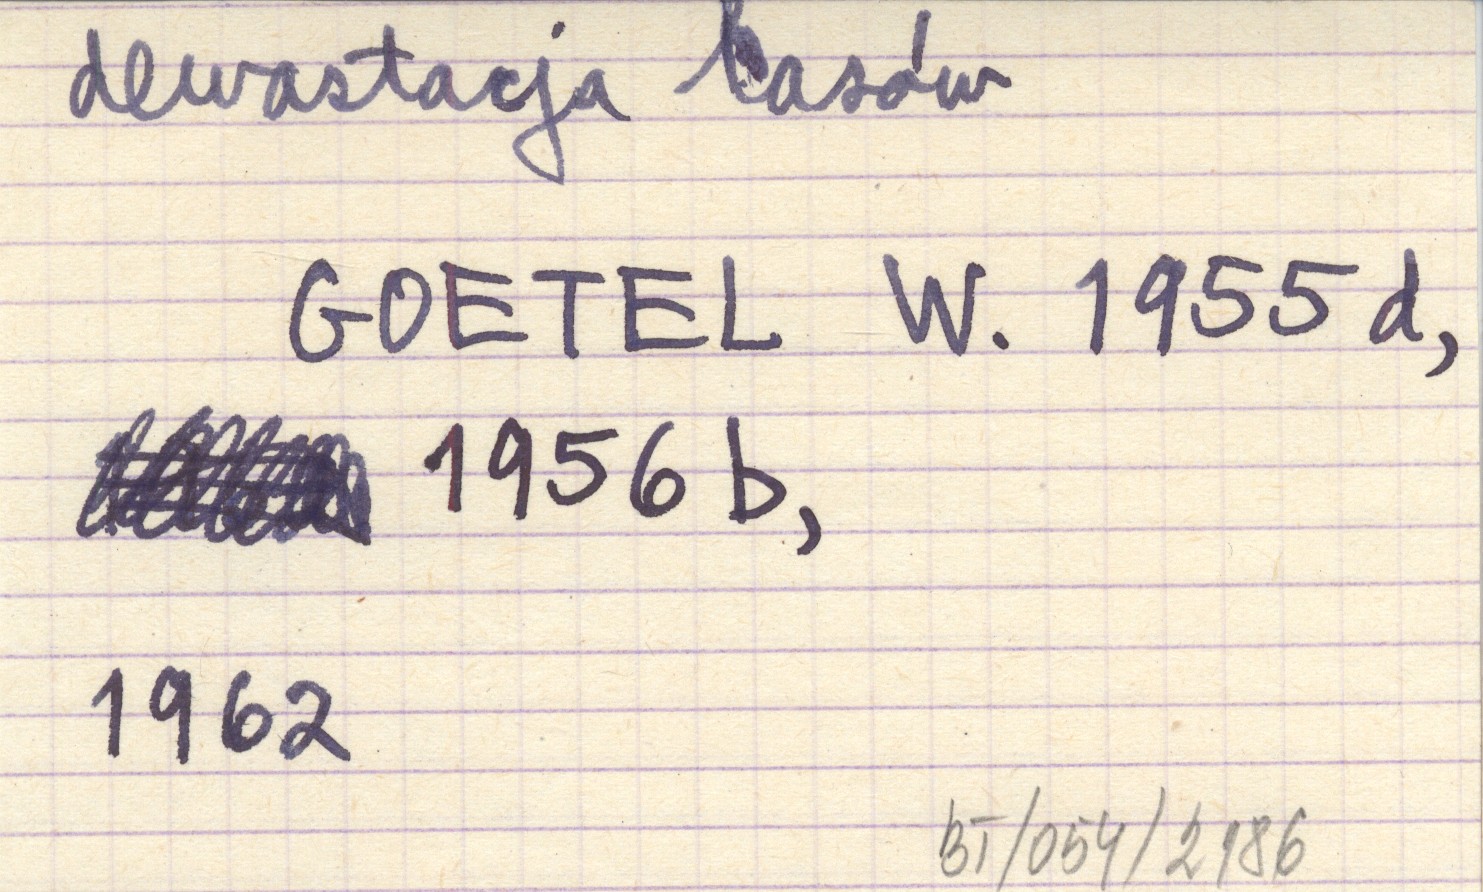 dewastacja lasów
GOETEL W. 1955 d,
1956 b,
1962
BT/054/2186